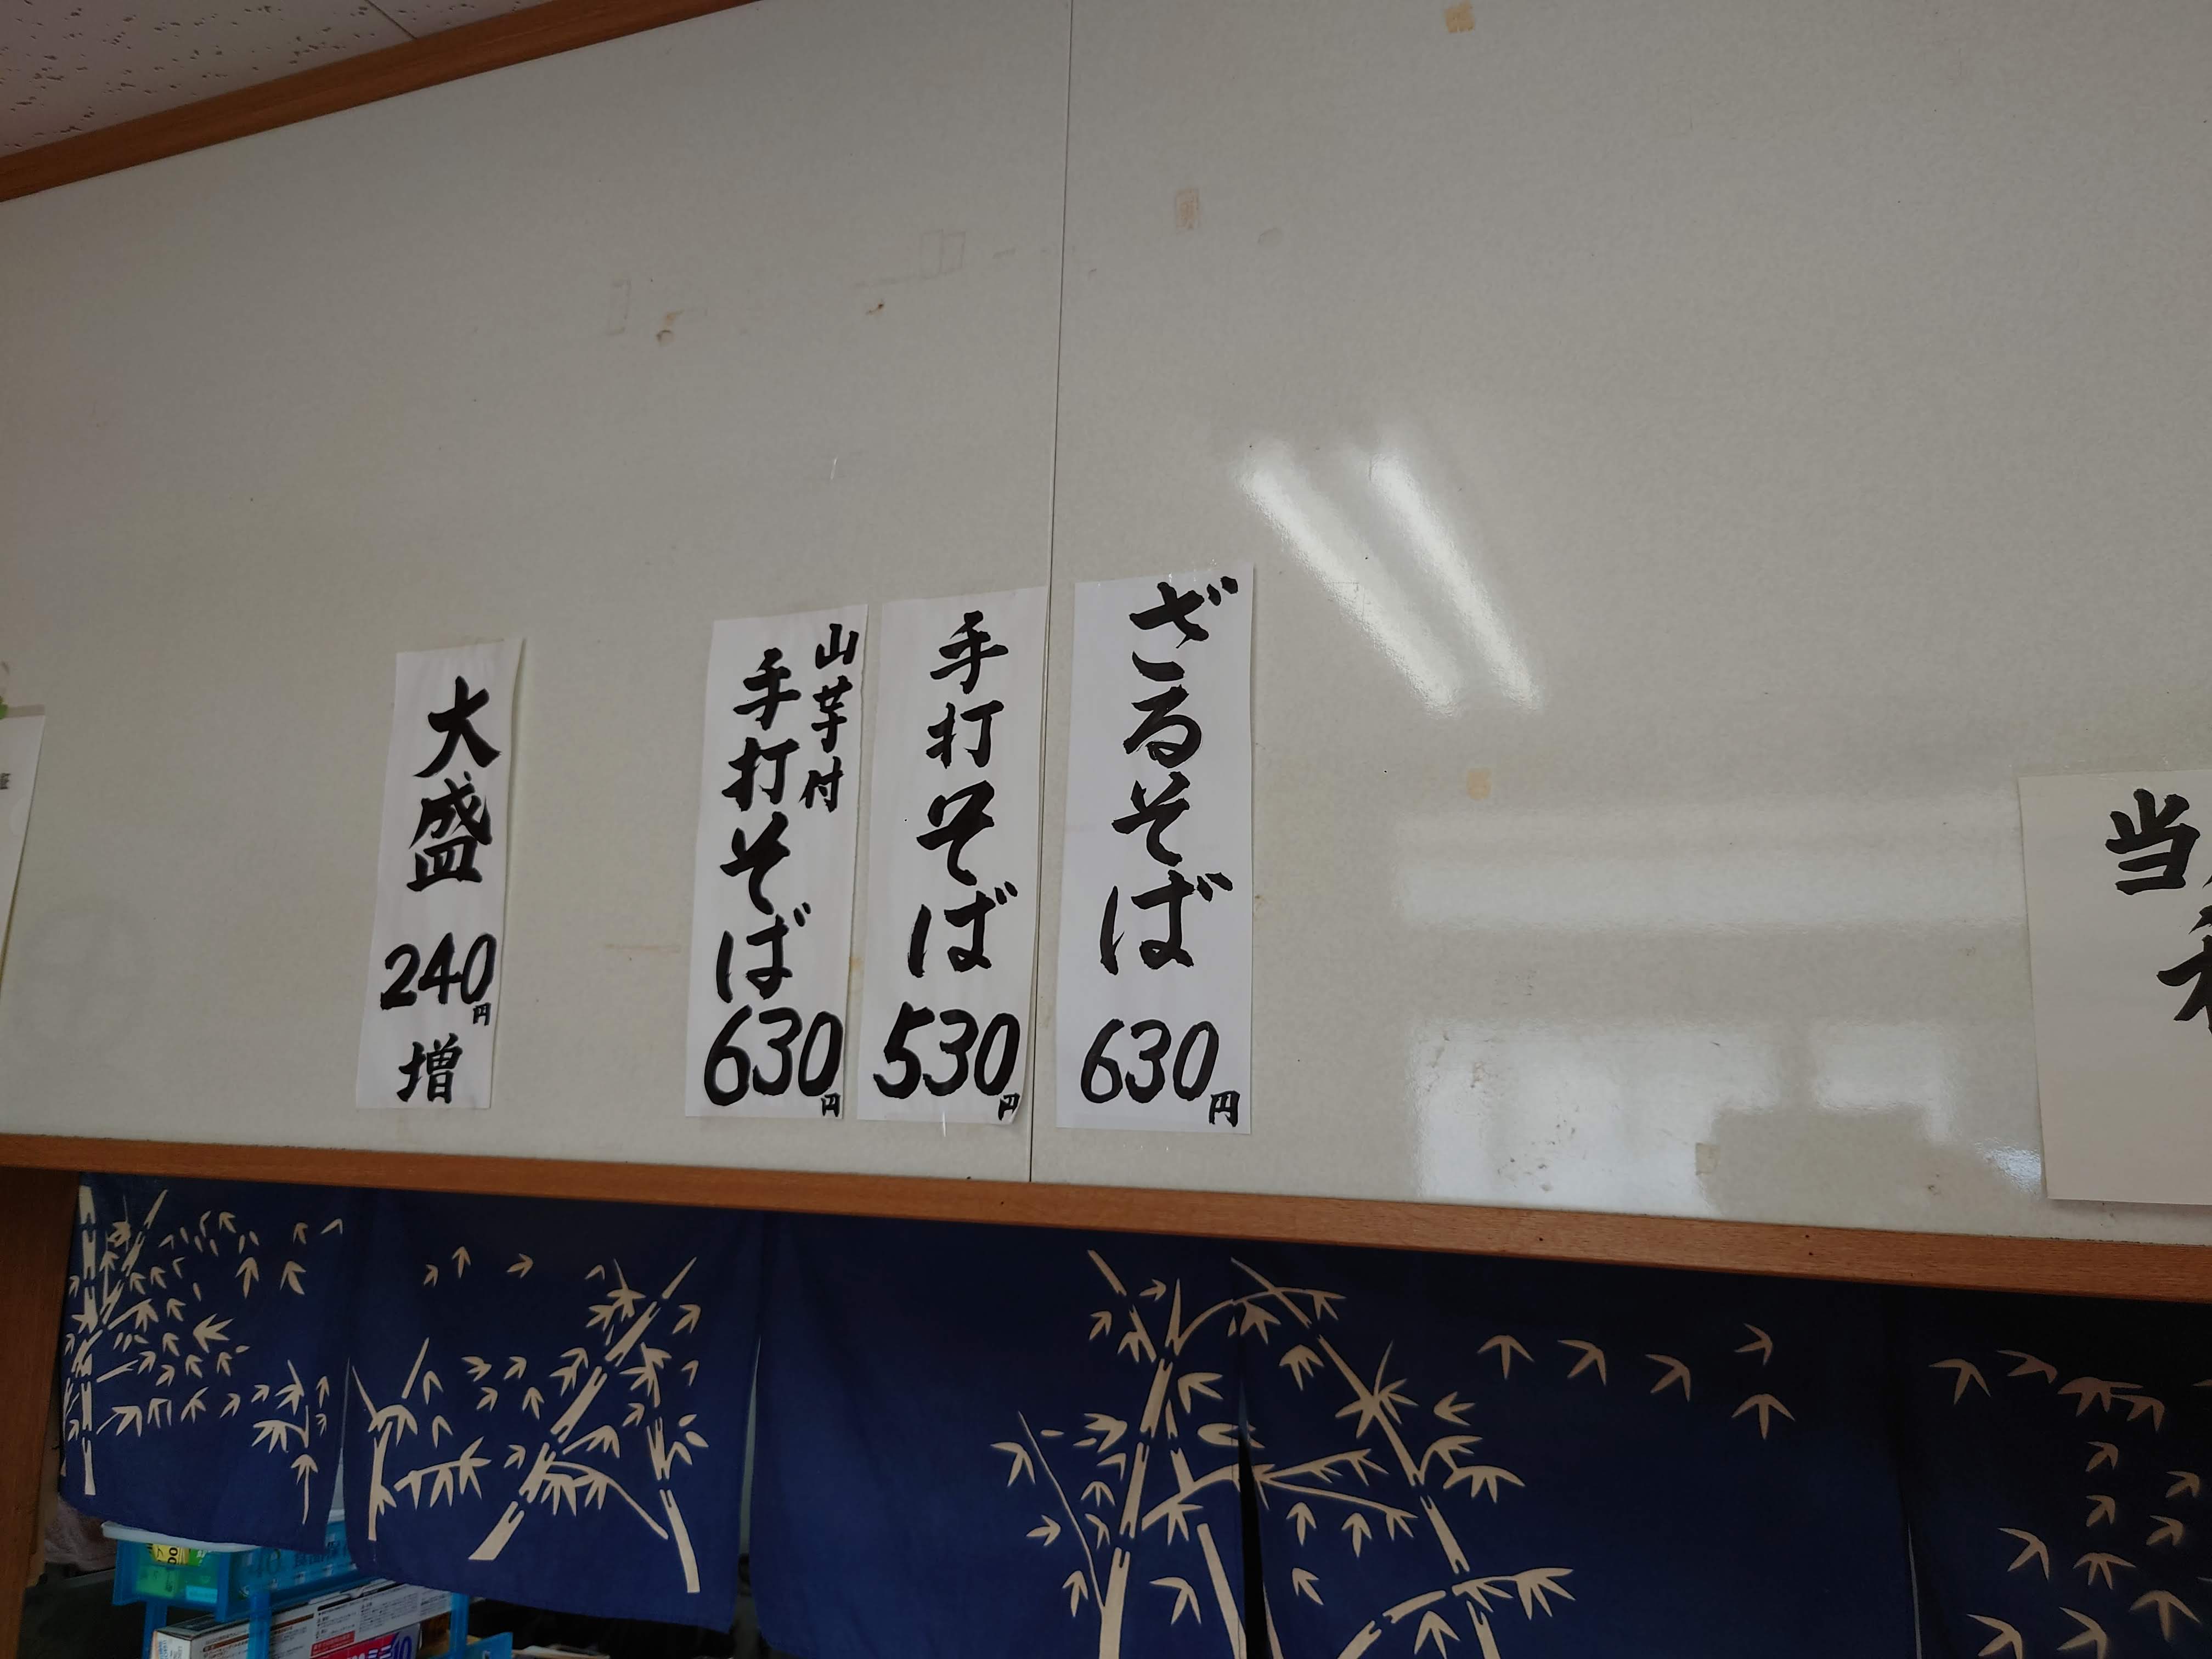 ざるそば
630円
手打そば
530円
山芋付
手打そば
630円
大盛
240円
増
当